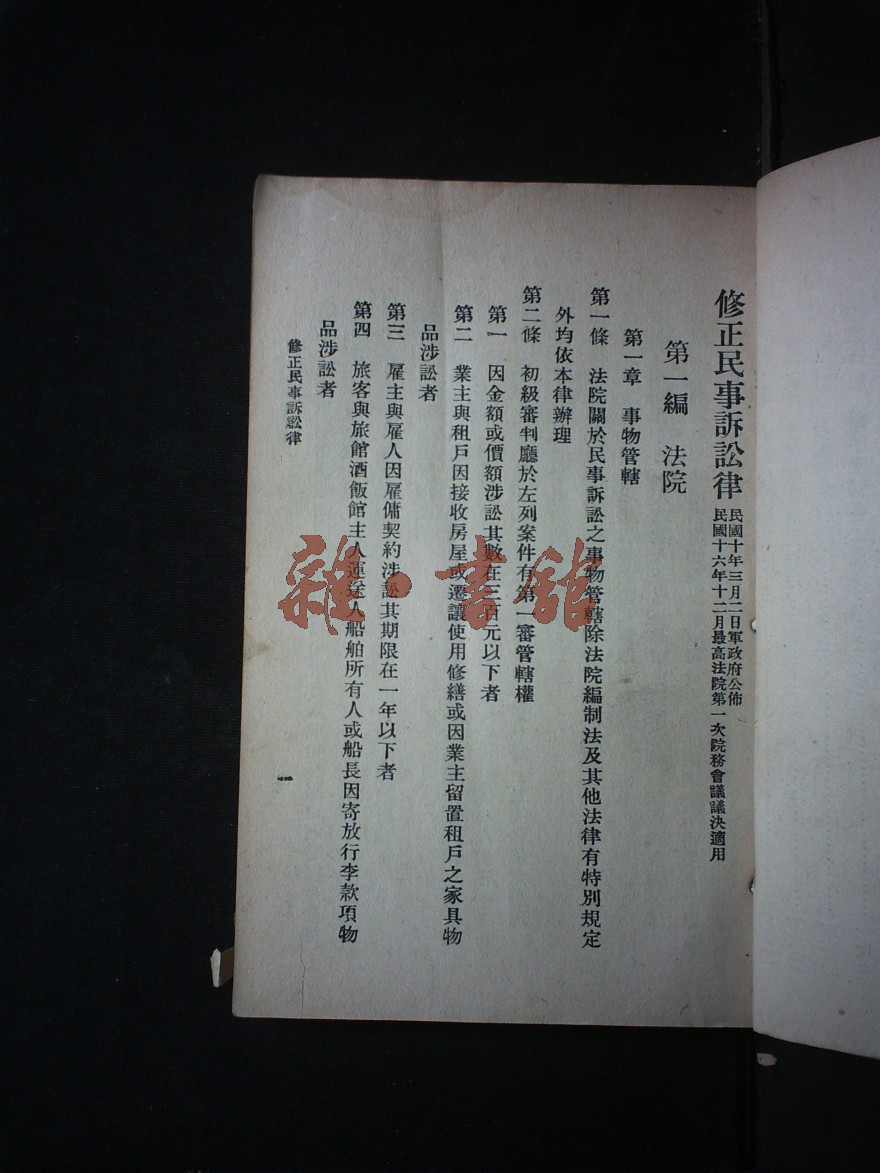 修正民事訴訟律
民國十年三月二日軍政府公佈
民國十六年十二月最高法院第一次院務會議議決適用
第一編　法院
第一章　事物管轄
第一條　法院關於民事訴訟之事物管轄除法院編制法及其他法律有特別規定
外均依本律辦理
第二條　初級審判廳於左列案件有第一審管轄權
第一　因金額或價額涉訟其數在三百元以下者
第二　業主與租戶因接收房屋或遷讓使用修繕或因業主留置租戶之家具物
品涉訟者
第三　雇主與雇人因雇傭契約涉訟其期限在一年以下者
第四　旅客與旅館酒飯館主人運送人船舶所有人或船長因寄放行李款項物
品涉訟者
修正民事訴訟律
一
雜·書館